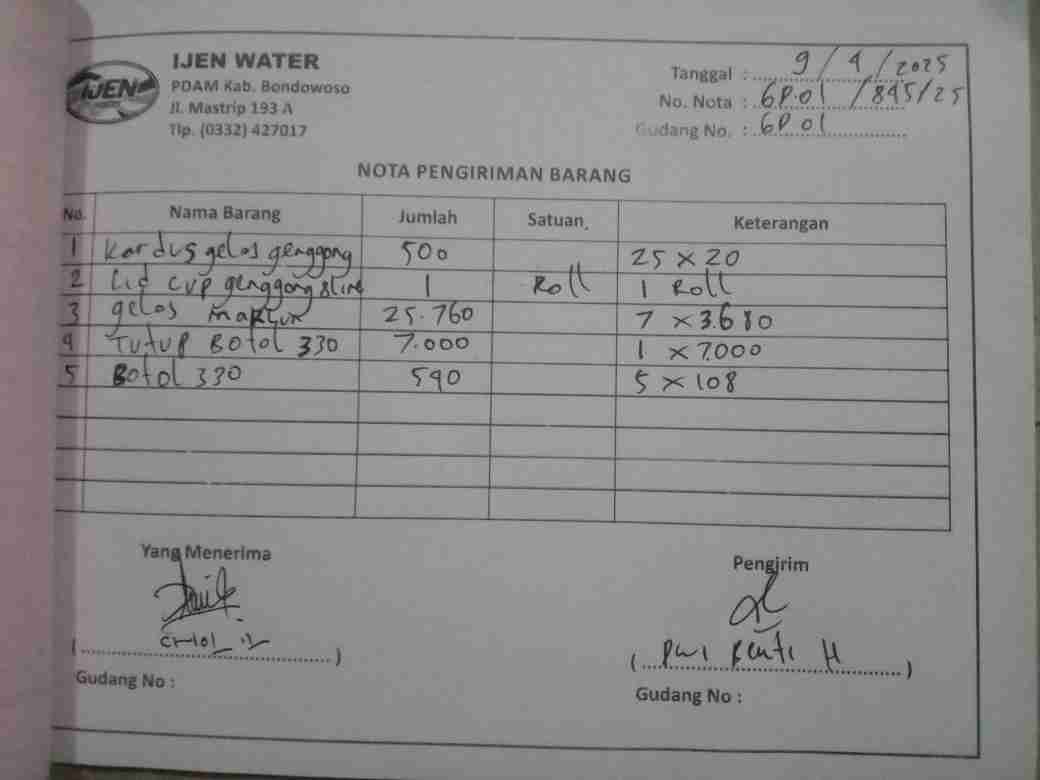 IJEN
IJEN WATER
PDAM Kab. Bondowoso
Jl. Mastrip 193 A
Tlp. (0332) 427017
Tanggal : 9/4/2025
No. Nota : GP.01 /845/25
Gudang No. : GP.01
NOTA PENGIRIMAN BARANG
No. Nama Barang Jumlah Satuan. Keterangan
1 Kardus gelas genggong 500 25 x 20
2 Lid cup genggong 1 Roll 1 Roll
3 gelas 25.760 7 x 3.680
4 Tutup Botol 330 7.000 1 x 7.000
5 Botol 330 540 5 x 108
Yang Menerima
Pengirim
( )
( H )
Gudang No :
Gudang No :